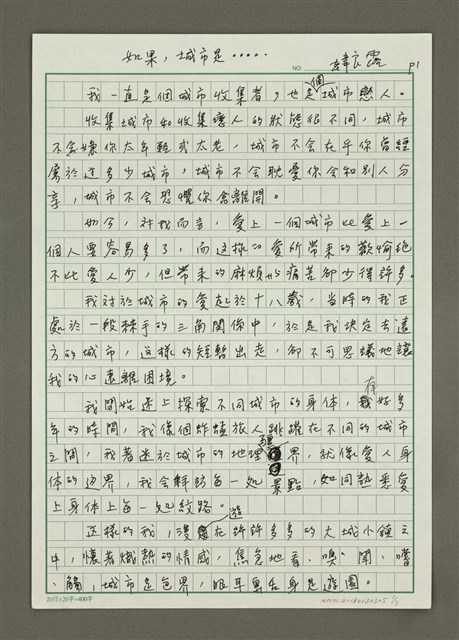 如果，城市是‧‧‧‧‧
NO: 韓良露 P1
我一直是個城市收集者，也是個城市戀人。
收集城市和收集戀人的狀態很不同，城市
不會嫌你太年輕或太老，城市不會在乎你曾經
屬於過多少城市，城市不會耽憂你會和別人分
享，城市不會恐懼你會離開。
如今，對我而言，愛上一個城市比愛上一
個人要容易多了，而這樣的愛所帶來的歡愉絕
不比愛人少，但帶來的麻煩與痛苦卻少得許多。
我對於城市的愛起於十八歲，當時的我正
處於一段棘手的三角關係中，於是我決定去遠
方的城市，這樣的短暫出走，卻不可思議地讓
我的心遠離困境。
我開始迷上探索不同城市的身体，有好多
年的時間，我像個蚱蜢旅人跳躍在不同的城市
之間，我著迷於城市的地理世界，就像愛人身
体的邊界，我会觸訪每一处景點，如同熟悉愛
上身体上每一处紋路。
這樣的我，漫遊在許許多多的大城小鎮之
中，懷著熾熱的情感，焦急地看、嗅、聞、嚐
、觸，城市是包界，眼耳鼻舌身是遊園。
20行×20字=400字